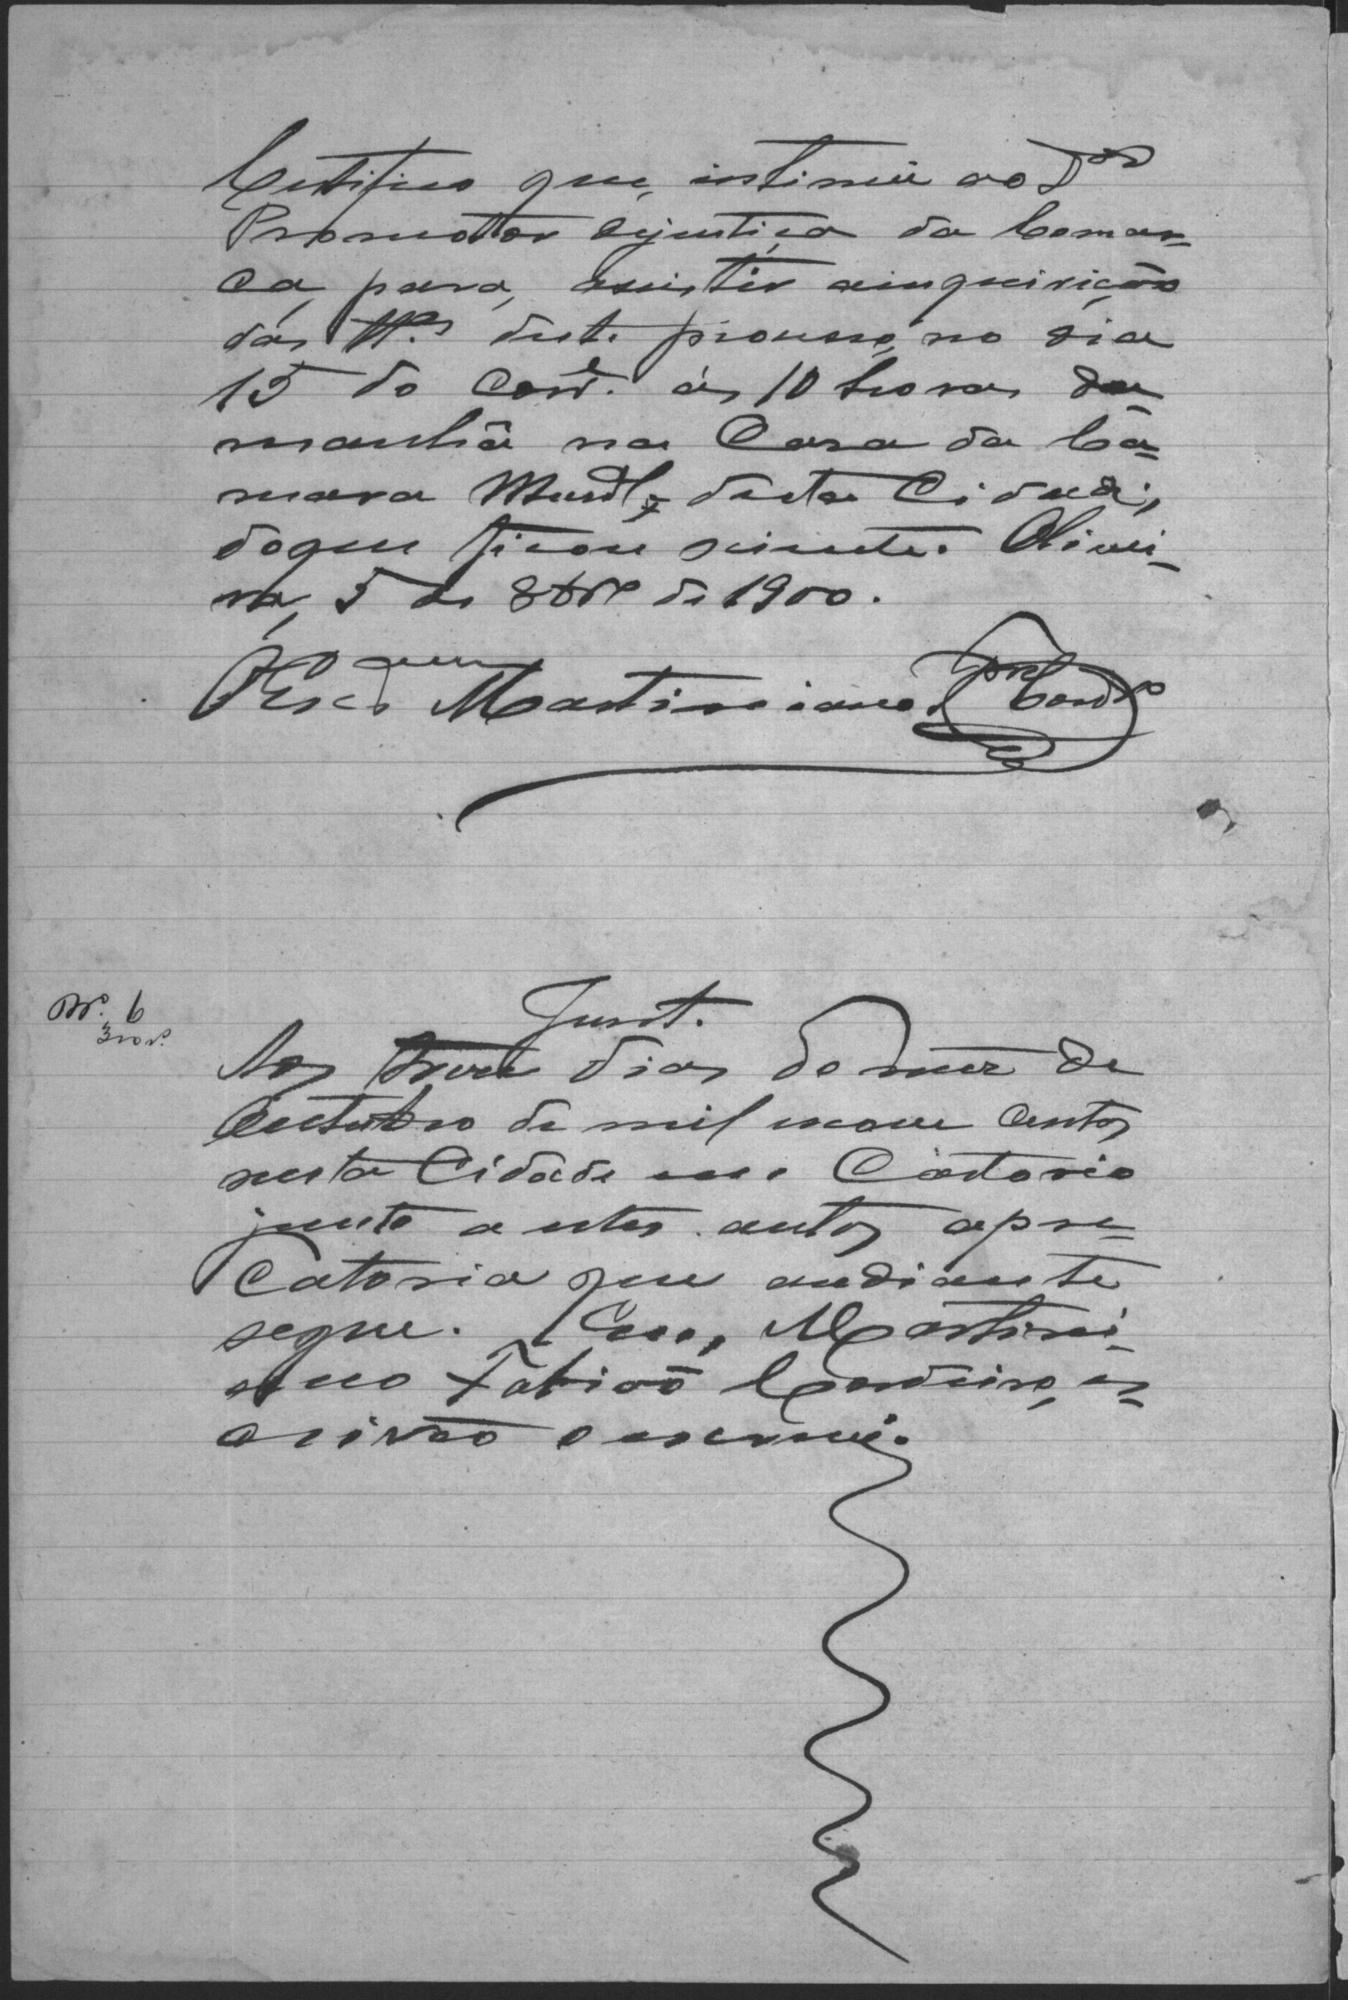 Certifico que, intimei ao Dor
Promotor dejustiça da Comar-
ca, para, assistir ainquirição
das ttas deste processo, no dia
15 do Corre. ás 10 horas da
manhã na Casa da Câ-
mara Munal, desta Cidade,
doque ficou sciente. Olivei-
ra, 5 de 8bro de 1900.
O Escam Martiniano Fre Cordo
Junt.
Aos treze dias do mez de
Outubro de mil nove centos
nesta Cidade em Cartorio
junto a estes autos apre-
catoria que audiante
segue. Eu, Martini-
ano Fabião Cordeiro, es-
crivão o escrevi.